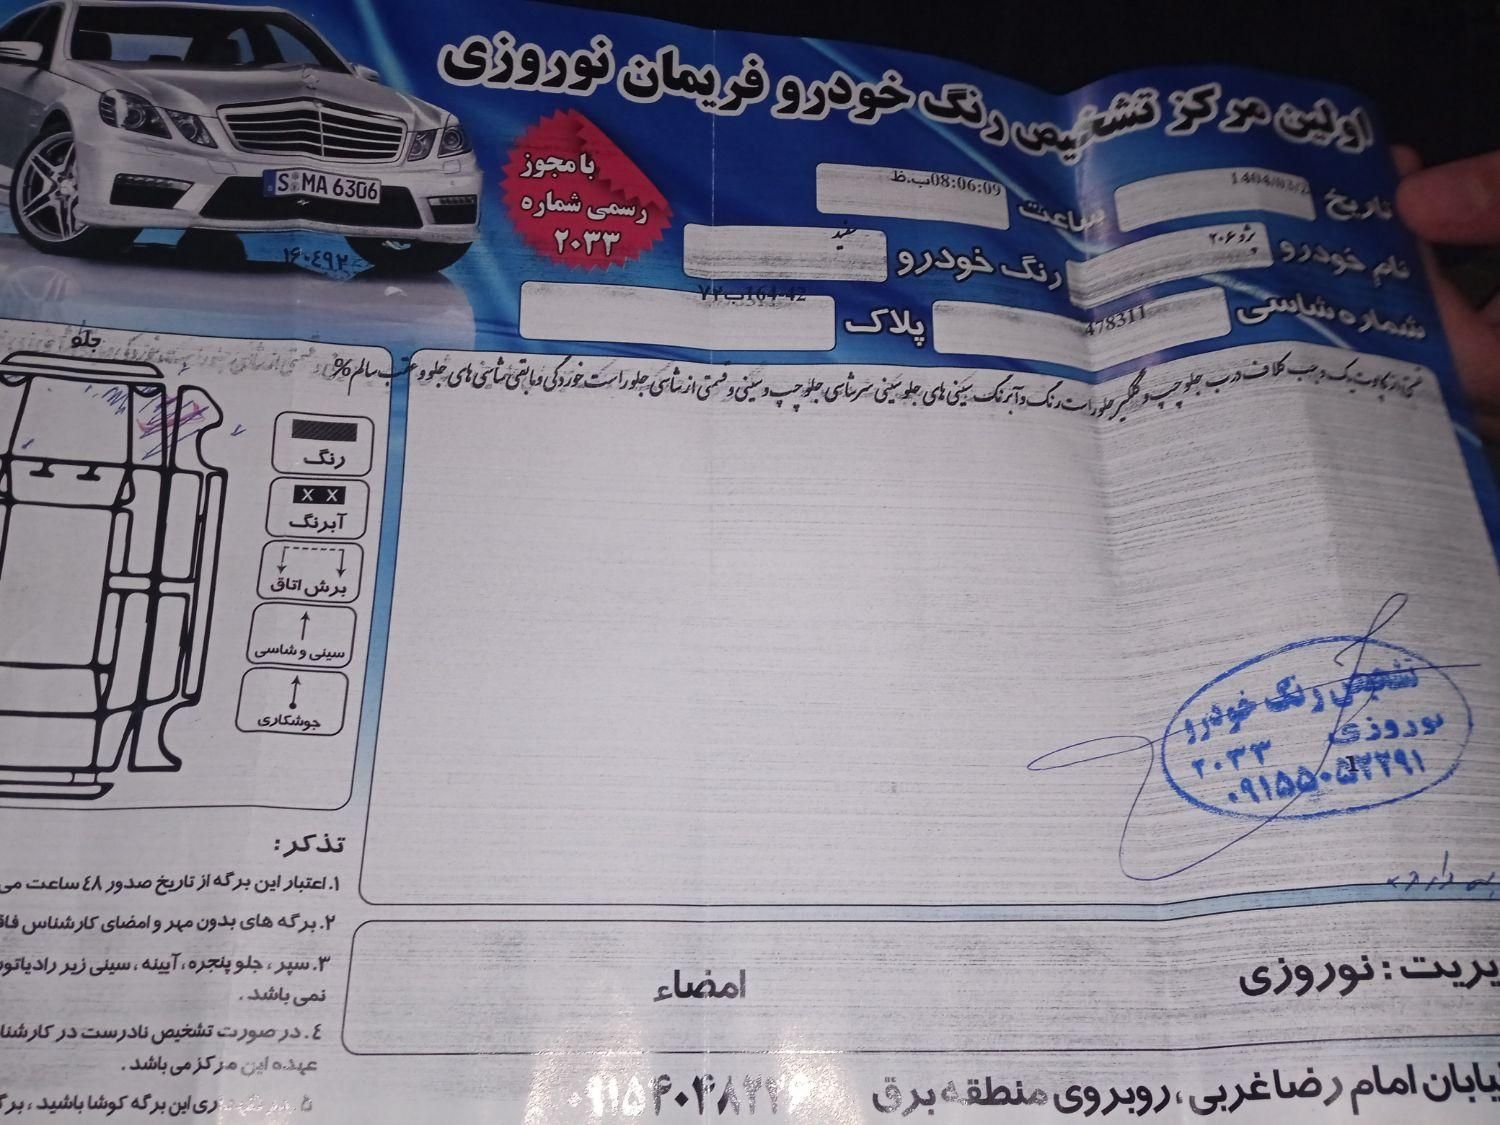 اولین مرکز تشخیص رنگ خودرو فریمان نوروزی
با مجوز
رسمی شماره
۲۰۳۳
تاریخ 1404/03/2
ساعت 08:06:09ب.ظ
نام خودرو پژو ۲۰۶
رنگ خودرو سفید
شماره شاسی 478311
پلاک 42-164ب۷۲
S MA 6306
۱۶۰۴۹۲
قسمتی از کاپوت یک وجب کلاف درب جلو چپ و گلگیر جلو راست رنگ و آبرنگ سینی های جلو سینی سرشاسی جلو چپ و سینی و قسمتی از شاسی جلو راست خوردگی و مابقی شاسی های جلو و عقب سالم %
جلو
رنگ
X X
آبرنگ
برش اتاق
سینی و شاسی
جوشکاری
تشخیص رنگ خودرو
نوروزی
۲۰۳۳
1
تذکر :
۱. اعتبار این برگه از تاریخ صدور ٤٨ ساعت می
۲. برگه های بدون مهر و امضای کارشناس فاق
۳. سپر ، جلو پنجره ، آیینه ، سینی زیر رادیاتور
نمی باشد .
٤. در صورت تشخیص نادرست در کارشنا
عهده این مرکز می باشد .
این برگه کوشا باشید ، برگ
یریت : نوروزی
امضاء
یابان امام رضا غربی ، روبروی منطقه برق